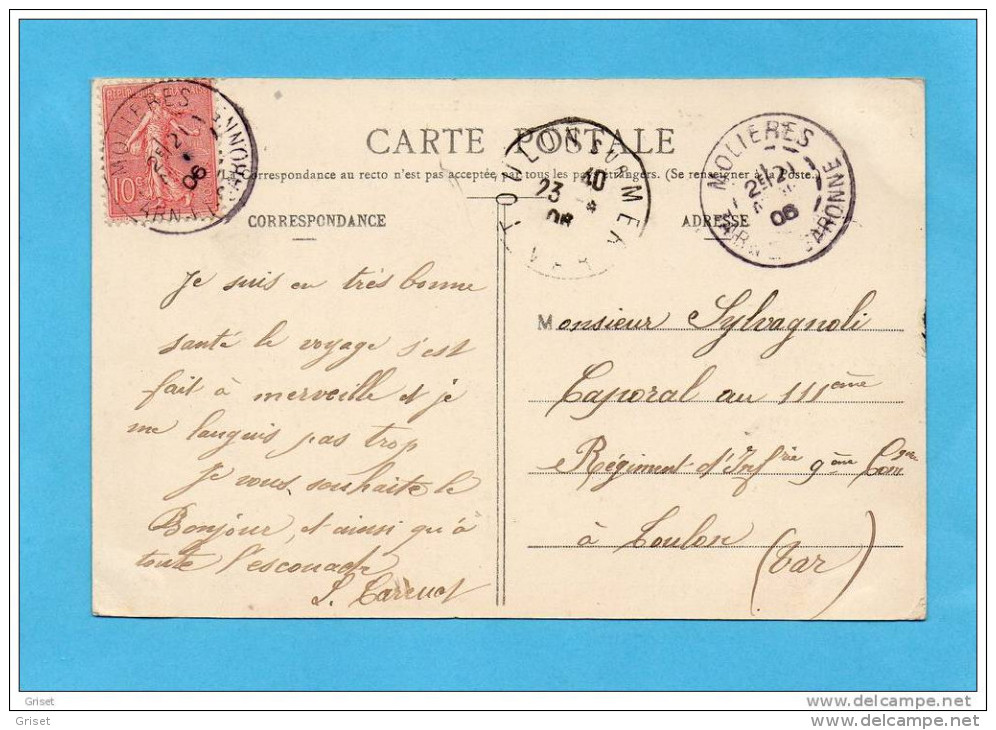 REPUBLIQUE FRANÇAISE
10c
MOLIERES
21
06
TARN-ET-GARONNE
CARTE POSTALE
La Correspondance au recto n'est pas acceptée par tous les pays étrangers. (Se renseigner à la Poste.)
TOULON SUR MER
23
40
06
VAR
MOLIERES
21
06
TARN-ET-GARONNE
CORRESPONDANCE
ADRESSE
Je suis en très bonne
santé le voyage s'est
fait à merveille et je
me languis pas trop
Je vous souhaite le
Bonjour, et ainsi qu'à
toute l'escouade
Monsieur Sylvagnoli
Caporal au 111ème
Régiment d'Infrie 9ème
à Toulon
(Var)
Griset
Griset
www.delcampe.net
www.delcampe.net